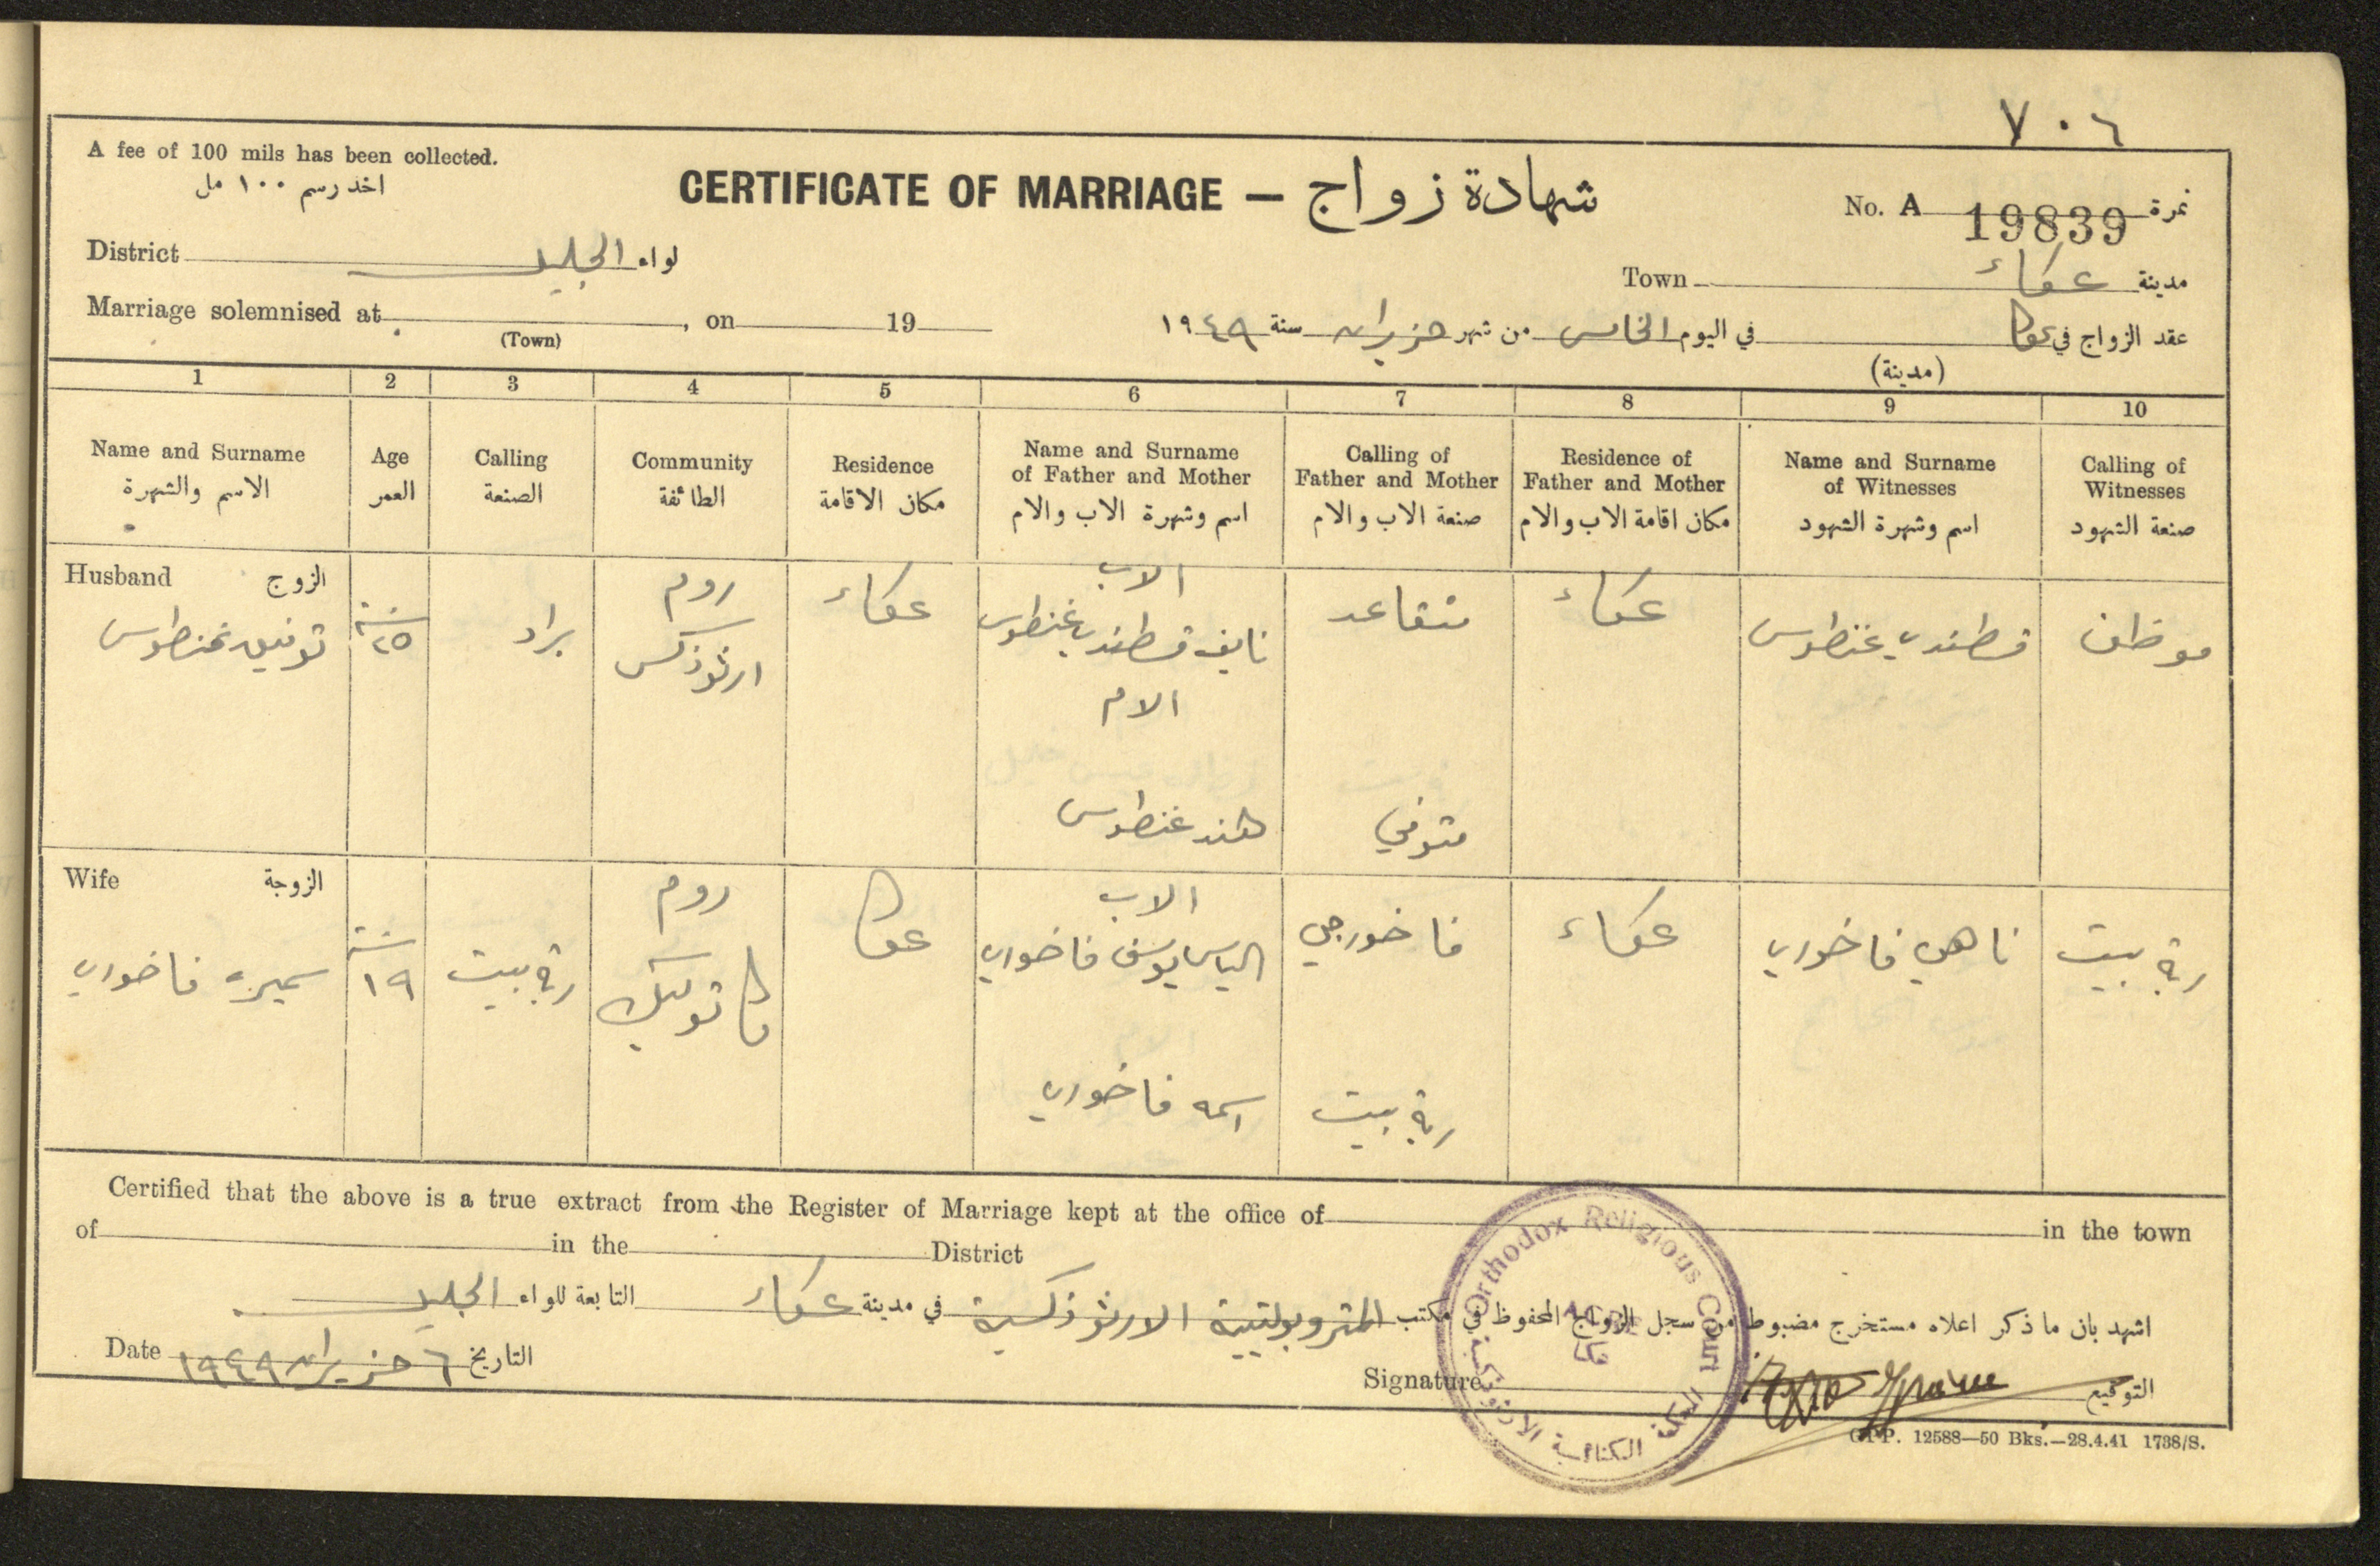 ٧٠٦
A fee of 100 mils has been collected.
اخذ رسم ١٠٠ مل
CERTIFICATE OF MARRIAGE — شهادة زواج
No. A 19839 نمرة
District الجليل لواء
Town عكاء مدينة
Marriage solemnised at , on 19
(Town)
عقد الزواج في عكا في اليوم الخامس من شهر حزيران سنة ١٩٤٩
(مدينة)
1 2 3 4 5 6 7 8 9 10
Name and Surname
الاسم والشهرة
Age
العمر
Calling
الصنعة
Community
الطائفة
Residence
مكان الاقامة
Name and Surname
of Father and Mother
اسم وشهرة الاب والام
Calling of
Father and Mother
صنعة الاب والام
Residence of
Father and Mother
مكان اقامة الاب والام
Name and Surname
of Witnesses
اسم وشهرة الشهود
Calling of
Witnesses
صنعة الشهود
Husband الزوج
توفيق غنطوس
سنة
٢٥
براد
روم
ارثوذكس
عكاء
الاب
نايف قسطندي غنطوس
الام
هند غنطوس
متقاعد
متوفي
عكاء
قسطندي غنطوس
موظف
Wife الزوجة
سميره فاخوري
سنة
١٩
ربة بيت
روم
كاتوليك
عكا
الاب
الياس يوسف فاخوري
اسمه فاخوري
فاخورجي
ربة بيت
عكاء
ناهي فاخوري
ربة بيت
Certified that the above is a true extract from the Register of Marriage kept at the office of in the town
of in the District
اشهد بان ما ذكر اعلاه مستخرج مضبوط من سجل الزواج المحفوظ في مكتب المتروبوليتية الارثوذكسية في مدينة عكاء التابعة للواء الجليل
Date ٦ حزيران ١٩٤٩ التاريخ
Signature التوقيع
Orthodox Religious Court
عكا
المحكمة الكنائسية الارثوذكسية
G.P.P. 12588—50 Bks.—28.4.41 1738/S.